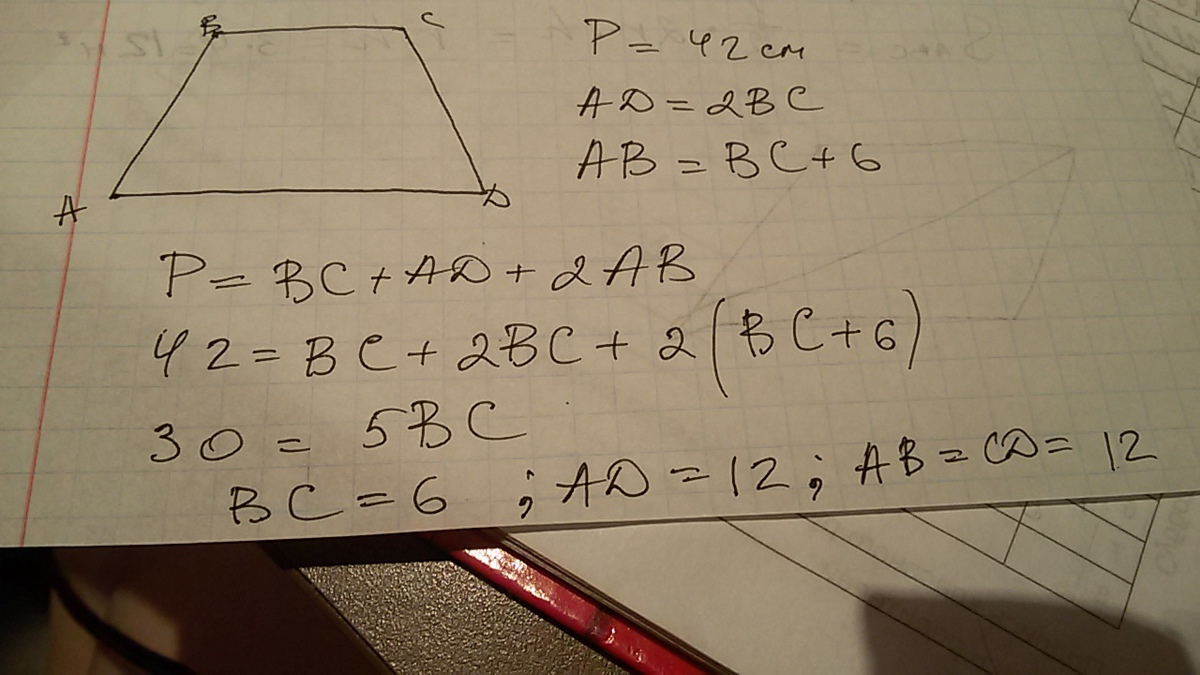 B C
A D
P = 42 см
AD = 2BC
AB = BC + 6
P = BC + AD + 2AB
42 = BC + 2BC + 2(BC + 6)
30 = 5BC
BC = 6 ; AD = 12 ; AB = CD = 12